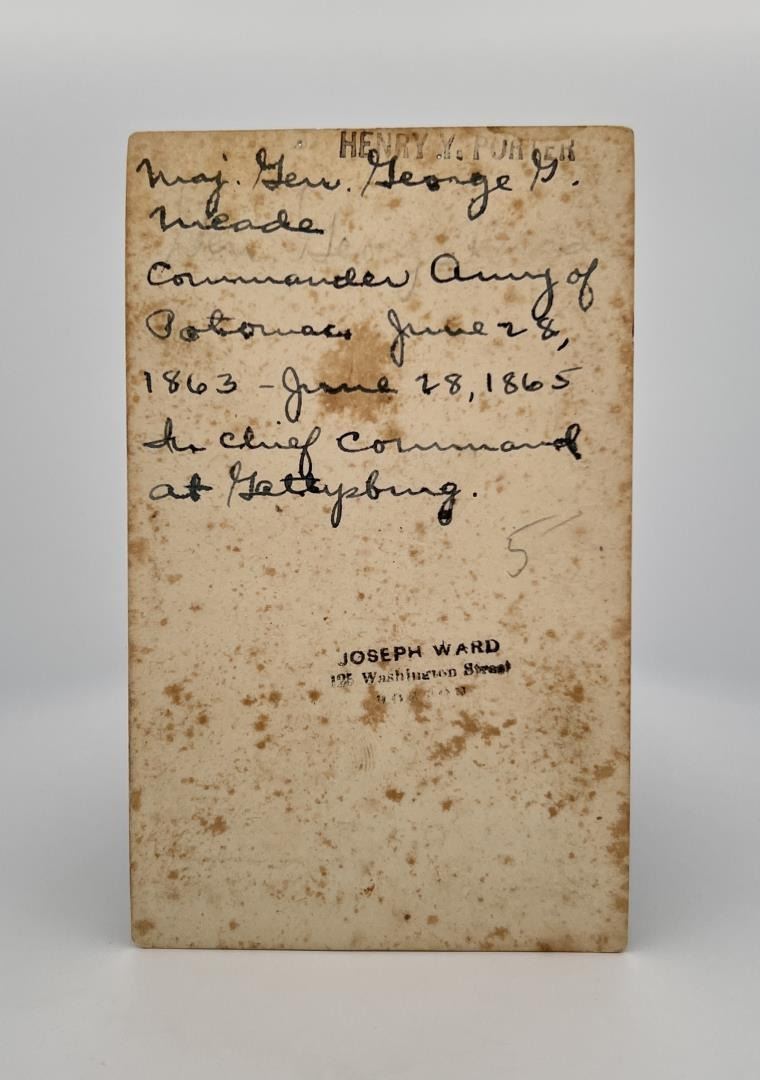 HENRY Y. PORTER
Maj. Gen. George G.
Meade
Commander Army of
Potomac June 28,
1863 - June 28, 1865
In chief command
at Gettysburg.
5
JOSEPH WARD
125 Washington Street
BOSTON